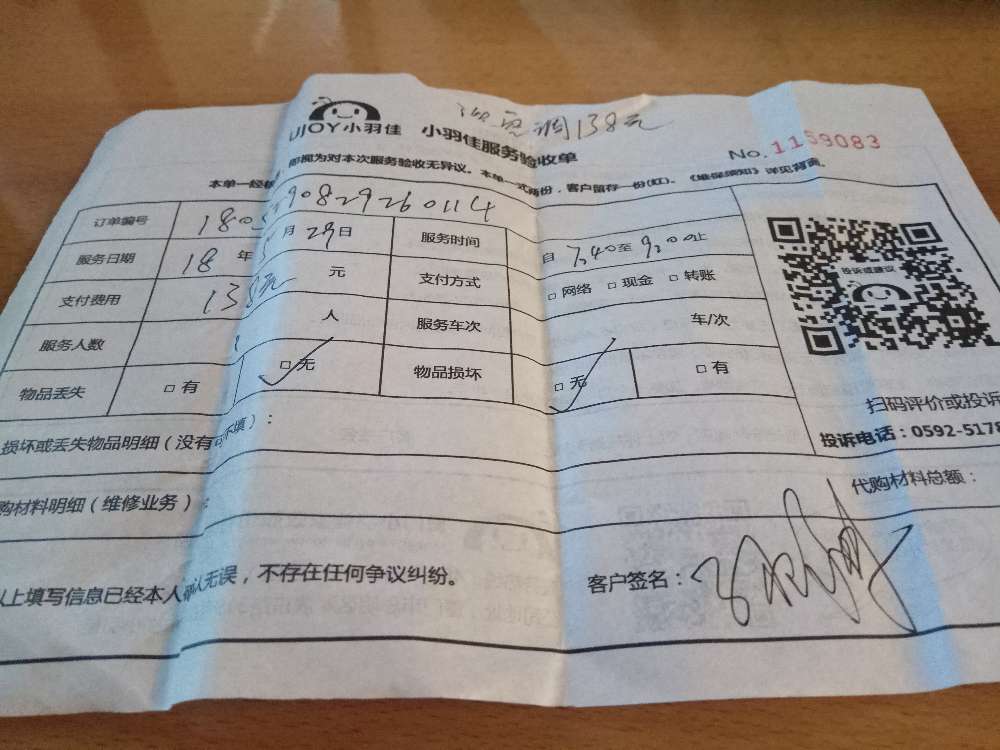 UJOY小羽佳 小羽佳服务验收单
138元
No. 1169083
即视为对本次服务验收无异议。本单一式两份，客户留存一份(红)。《维保须知》详见背面。
本单一经
订单编号
服务日期 18年 月29日 服务时间 自7:40至9:00止
支付费用 138元 元 支付方式 □网络 □现金 □转账
服务人数 人 服务车次 车/次
物品丢失 □有 □无 物品损坏 □无 □有
投诉或建议
扫码评价或投诉
投诉电话：0592-5178
损坏或丢失物品明细（没有可不填）：
购材料明细（维修业务）： 代购材料总额：
以上填写信息已经本人确认无误，不存在任何争议纠纷。 客户签名：